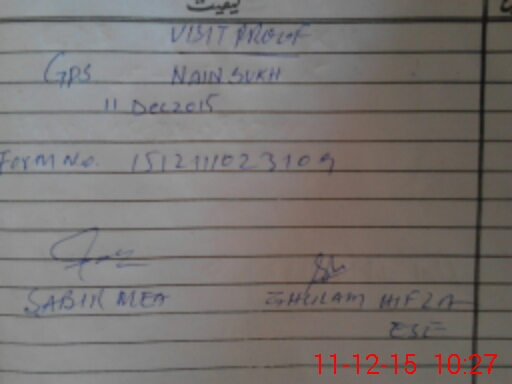 کیفیت
VISIT PROOF
GPS NAINSUKH
11 Dec 2015
Form No. 1512111023109
SABIR MEA
GHULAM HIFZA
ESE
11-12-15 10:27